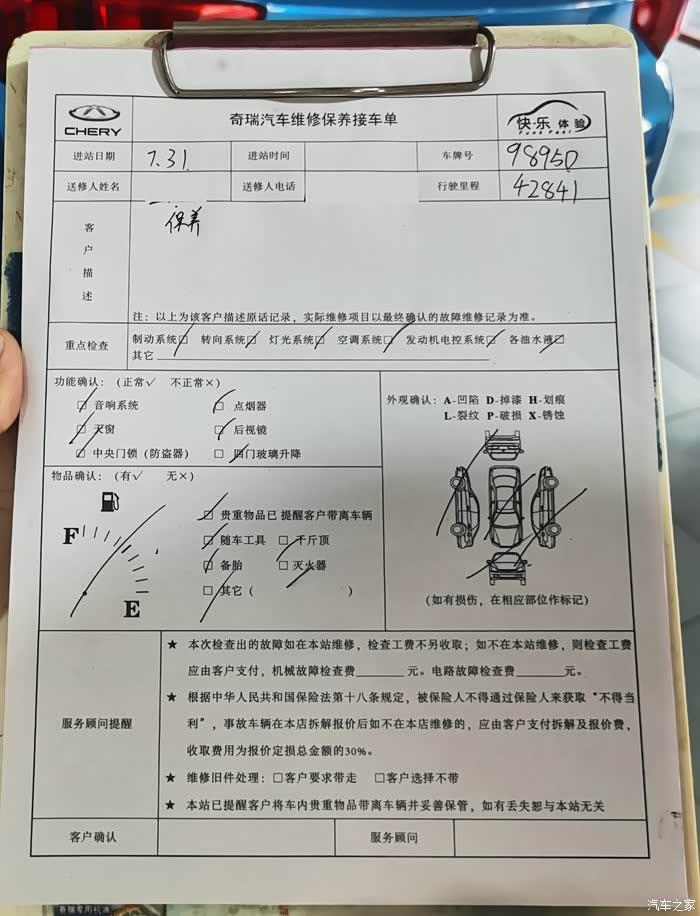 CHERY
奇瑞汽车维修保养接车单
快·乐 体验
进站日期 7.31 进站时间 车牌号 98950
送修人姓名 送修人电话 行驶里程 42841
客户描述
保养
注：以上为该客户描述原话记录，实际维修项目以最终确认的故障维修记录为准。
重点检查 制动系统□ 转向系统□ 灯光系统□ 空调系统□ 发动机电控系统□ 各油水液□
其它
功能确认：（正常√ 不正常×）
□ 音响系统 □ 点烟器
□ 天窗 □ 后视镜
□ 中央门锁（防盗器） □ 四门玻璃升降
外观确认：A-凹陷 D-掉漆 H-划痕
L-裂纹 P-破损 X-锈蚀
（如有损伤，在相应部位作标记）
物品确认：（有√ 无×）
F
E
□ 贵重物品已提醒客户带离车辆
□ 随车工具 □ 千斤顶
□ 备胎 □ 灭火器
□ 其它（ ）
服务顾问提醒
★ 本次检查出的故障如在本站维修，检查工费不另收取；如不在本站维修，则检查工费
应由客户支付，机械故障检查费______元。电路故障检查费______元。
★ 根据中华人民共和国保险法第十八条规定，被保险人不得通过保险人来获取“不得当
利”，事故车辆在本店拆解报价后如不在本店维修的，应由客户支付拆解及报价费，
收取费用为报价定损总金额的30%。
★ 维修旧件处理：□客户要求带走 □客户选择不带
★ 本站已提醒客户将车内贵重物品带离车辆并妥善保管，如有丢失恕与本站无关
客户确认 服务顾问
奇瑞专用机油
汽车之家